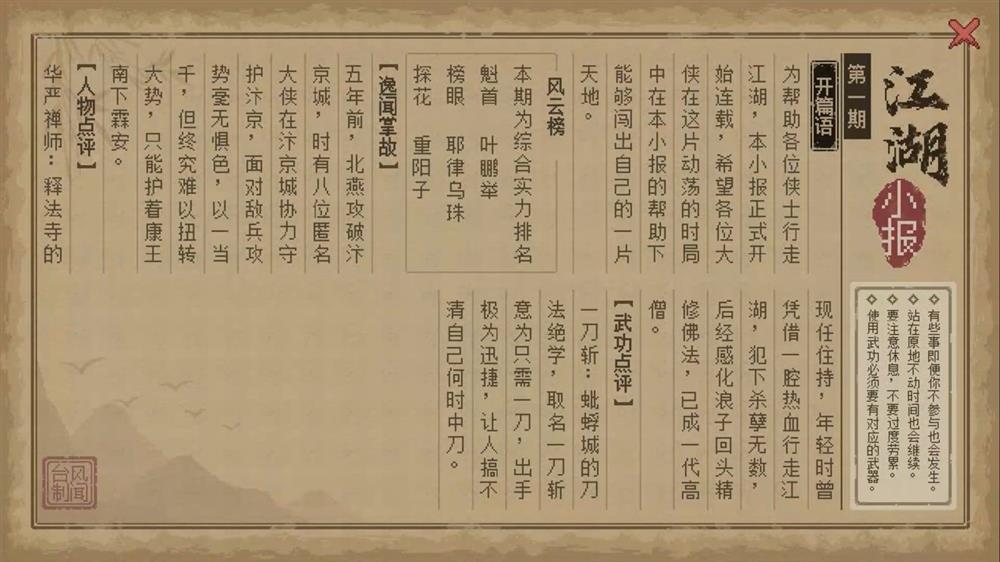 江湖
小报
第一期
开篇语
为帮助各位侠士行走
江湖，本小报正式开
始连载，希望各位大
侠在这片动荡的时局
中在本小报的帮助下
能够闯出自己的一片
天地。
风云榜
本期为综合实力排名
魁首 叶鹏举
榜眼 耶律乌珠
探花 重阳子
【逸闻掌故】
五年前，北燕攻破汴
京城，时有八位匿名
大侠在汴京城协力守
护汴京，面对敌兵攻
势毫无惧色，以一当
千，但终究难以扭转
大势，只能护着康王
南下霖安。
【人物点评】
华严禅师：释法寺的
现任住持，年轻时曾
凭借一腔热血行走江
湖，犯下杀孽无数，
后经感化浪子回头精
修佛法，已成一代高
僧。
【武功点评】
一刀斩：蚍蜉城的刀
法绝学，取名一刀斩
意为只需一刀，出手
极为迅捷，让人搞不
清自己何时中刀。
有些事即便你不参与也会发生。
站在原地不动时间也会继续。
要注意休息，不要过度劳累。
使用武功必须要有对应的武器。
风闻
台制